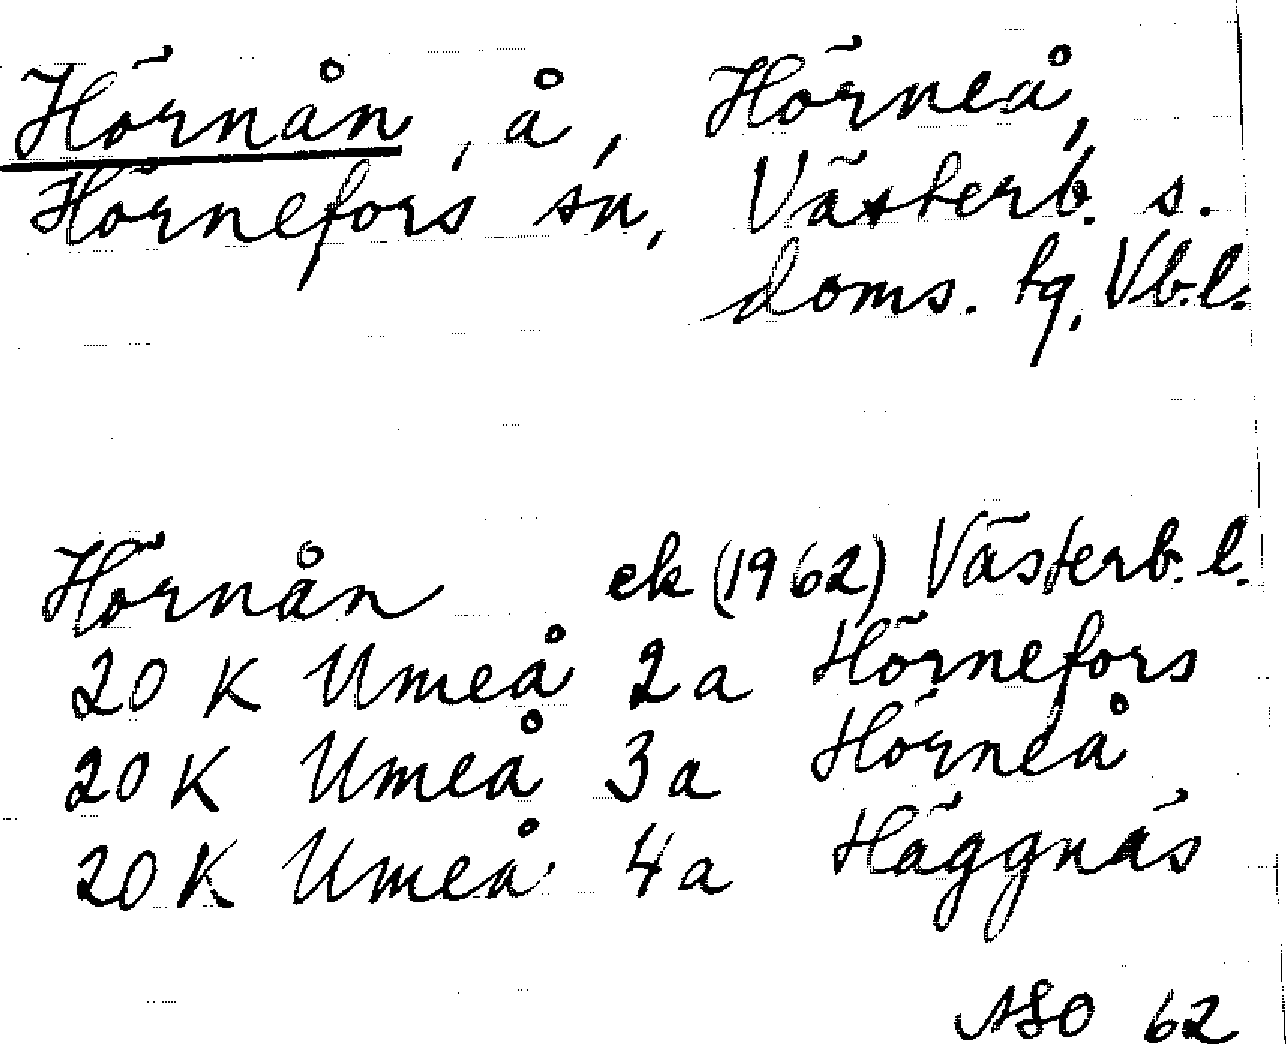 Hörnån, å, Hörneå,
Hörnefors sn, Västerb. s.
doms. tg, Vb.l.
Hörnån ek (1962) Västerb. l.
20 K Umeå 2a Hörnefors
20 K Umeå 3a Hörneå
20 K Umeå 4a Häggnäs
62